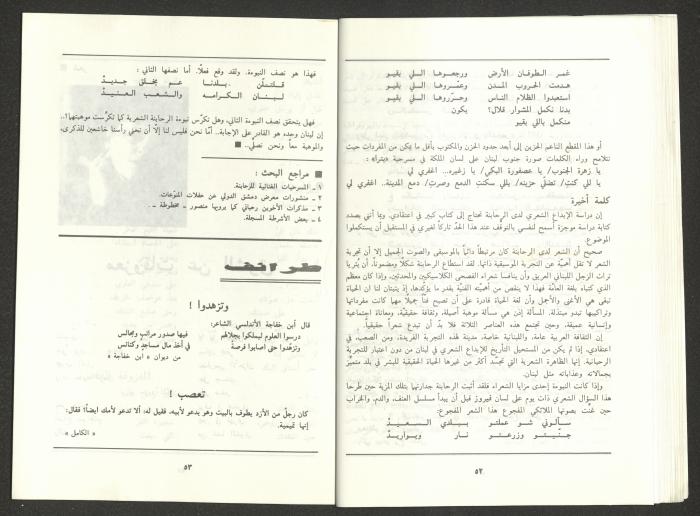 غمر الطوفان الأرض ورجعوها اللي بقيو
هدمت الحروب المدن وعمّروها اللي بقيو
استعبدوا الظلام الناس وحرّروها اللي بقيو
بدنا نكمل المشوار قلال؟ يكون
منكمل باللي بقيو
أو هذا المقطع الناعم الحزين إلى أبعد حدود الحزن والمكتوب بأقل ما يمكن من المفردات حيث
تتلامح وراء الكلمات صورة جنوب لبنان على لسان الملكة في مسرحية «بترا» :
يا زهرة الجنوب/ يا عصفورة البكي/ يا زغيره... اغفري لي
يا للي كنتِ/ تضلّي حزينه/ يللي سكتت الدمع وصرتِ/ دمع المدينة.. اغفري لي
كلمة أخيرة
إن دراسة الإبداع الشعري لدى الرحابنة تحتاج إلى كتاب كبير في اعتقادي، وبما أنني بصدد
كتابة دراسة موجزة أسمح لنفسي بالتوقف عند هذا الحدّ تاركاً لغيري في المستقبل أن يستكملوا
الموضوع.
صحيح أن الشعر لدى الرحابنة كان مرتبطاً دائماً بالموسيقى والصوت الجميل إلا أن تجربة
الشعر لا تقل أهميّة عن التجربة الموسيقية ذاتها. لقد استطاع الرحابنة شكلاً ومضموناً، أن يُثريا
تراث الزجل اللبناني العريق وأن ينافسا شعراء الفصحى الكلاسيكيين والمحدثين. وإذا كان معظم
الذي كتباه بلغة العامّة فهذا لا ينقص من أهميّته الفنيّة بقدر ما يؤكدها، إذ يتبيّن لنا ان الحياة
تبقى هي الأغنى والأجمل وأن لغة الحياة قادرة على أن تصبح فناً جميلاً مهما كانت مفرداتها
وتراكيبها تبدو مبتذلة. المسألة إذن هي مسألة موهبة أصيلة، وثقافة حقيقيّة، ومعاناة اجتماعية
وإنسانية عميقة. وحين تجتمع هذه العناصر الثلاثة فلا بدّ أن تبدع شعراً حقيقياً.
إن الثقافة العربية عامة، واللبنانية خاصة، مدينة لهذه التجربة الفريدة. ومن الصعب، في
اعتقادي، إذا لم يكن من المستحيل التأريخ للإبداع الشعري في لبنان من دون اعتبار للتجربة
الرحبانية. إنها الظاهرة الشعرية التي تجسّد أكثر من غيرها الحياة الحقيقية للبشر في بلد متميّز
بجمالاته وعذاباته مثل لبنان.
وإذا كانت النبوءة إحدى مزايا الشعراء، فلقد أثبت الرحابنة جدارتهما بتلك المزية حين طرحا
هذا السؤال الشعري ذات يوم على لسان فيروز قبل أن يبدأ مسلسل العنف، والدم، والخراب
حين غنّت بصوتها الملائكي المفجوع هذا الشعر المفجوع:
سألوني شو عملتو ببلدي السعيدْ
جنّيتو وزرعتو نار وبواريدْ
٥٢
فهذا هو نصف النبوءة. ولقد وقع فعلاً. أما نصفها الثاني:
قلتلُن بلدنا عم يخلق جديدْ
لبنان الكرامه والشعب العنيدْ
فهل يتحقق نصف النبوءة الثاني، وهل تكرّس نبوءة الرحابنة الشعرية كما تكرّست موهبتهما؟..
إن لبنان وحده هو القادر على الإجابة.. أمّا نحن فليس لنا إلّا أن نحني رأسنا خاشعين للذكرى،
والموهبة معاً ونحن نصلّي.. ■
■ مراجع البحث :
١ ـ المسرحيات الغنائية للرحابنة.
٢ ـ منشورات معرض دمشق الدولي عن حفلات المنوّعات.
٣ ـ مذكرات الأخوين رحباني كما يرويها منصور ـ مخطوطة ـ .
٤ ـ بعض الأشرطة المسجلة.
طرائف
وتزهدوا !
قال أبن خفاجة الأندلسي الشاعر:
درسوا العلوم ليملكوا بجدالهم فيها صدور مراتبٍ ومجالسِ
وتزهّدوا حتى اصابوا فرصةً في أخذ مال مساجدٍ وكنائس
من ديوان « ابن خفاجة »
تعصب !
كان رجلٌ من الأزد يطوف بالبيت وهو يدعو لأبيه، فقيل له: ألا تدعو لأمك ايضاً؟ فقال:
إنها تميمية.
« الكامل »
٥٣